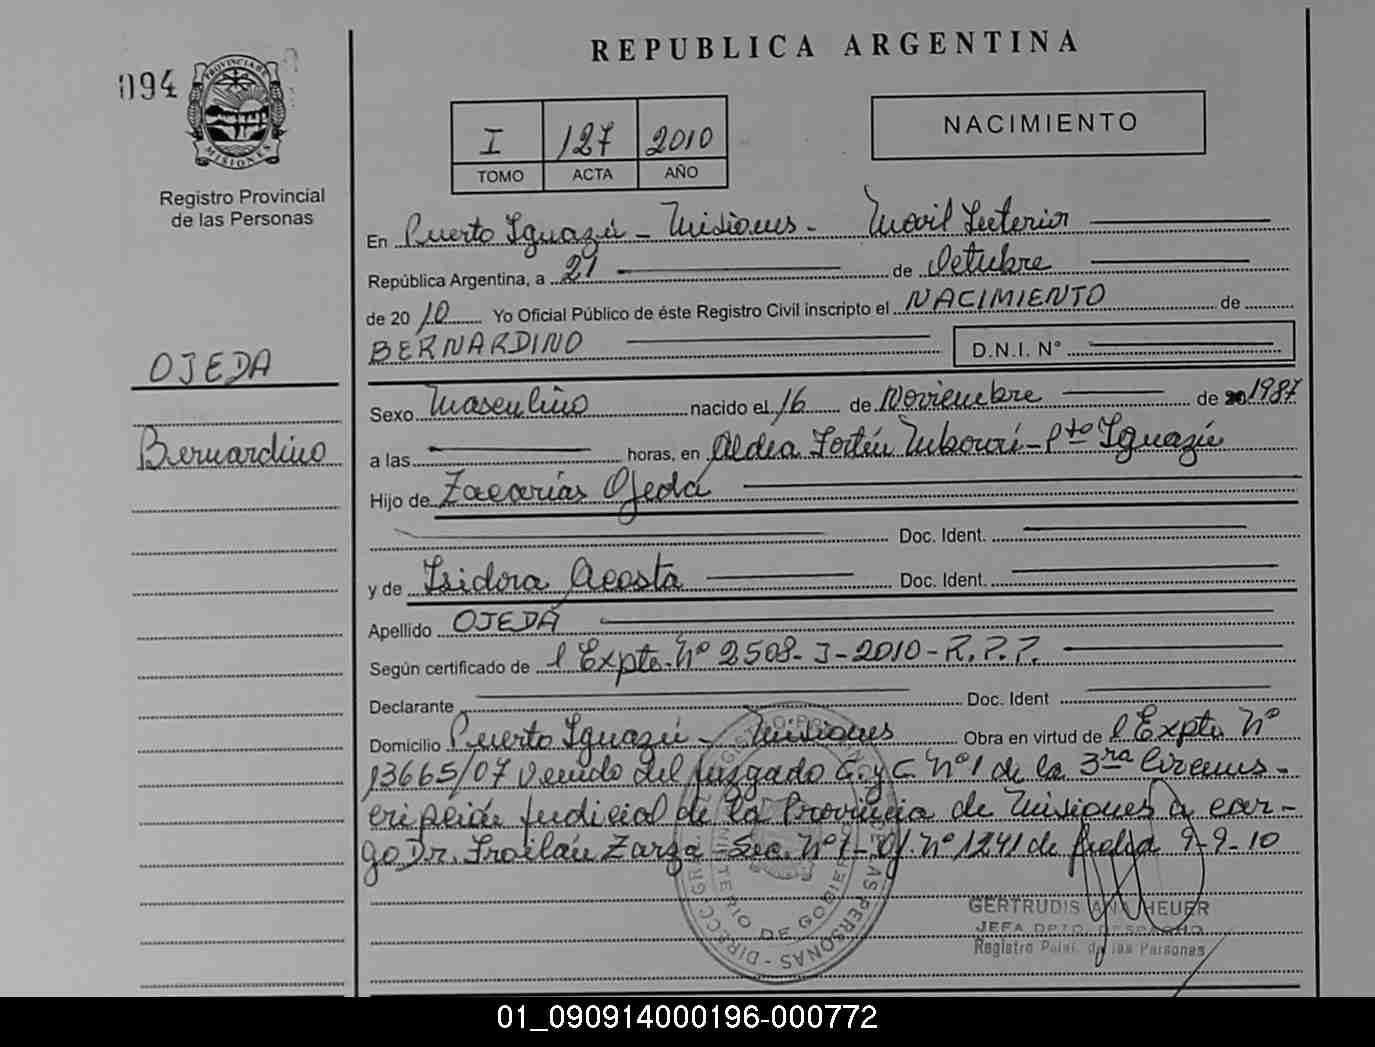 REPUBLICA ARGENTINA
094
I 127 2010
TOMO ACTA AÑO
NACIMIENTO
PROVINCIA DE MISIONES
Registro Provincial
de las Personas
En Puerto Iguazú - Misiones - Movil Interior
República Argentina, a 21 de Octubre
de 2010 Yo Oficial Público de éste Registro Civil inscripto el NACIMIENTO de
BERNARDINO D.N.I. N°
OJEDA
Bernardino
Sexo Masculino nacido el 16 de Noviembre de 20 1987
a las horas, en Aldea Fortín Mbororé - Pto Iguazú
Hijo de Zacarías Ojeda
Doc. Ident.
y de Isidora Acosta Doc. Ident.
Apellido OJEDA
Según certificado de l Expte. Nº 2508-I-2010-R.P.P.
Declarante Doc. Ident
Domicilio Puerto Iguazú - Misiones Obra en virtud de l Expte Nº
13665/07 venido del Juzgado C. y C. Nº1 de la 3ra Circuns-
cripción Judicial de la Provincia de Misiones a car-
go Dr. Froilán Zarza - Sec. Nº1 - Of. Nº 1241 de fecha 9-9-10
MINISTERIO DE GOBIERNO
DE LAS PERSONAS
GERTRUDIS ANA HEUER
JEFA DPTO. DESPACHO
Registro de las Personas
01_090914000196-000772